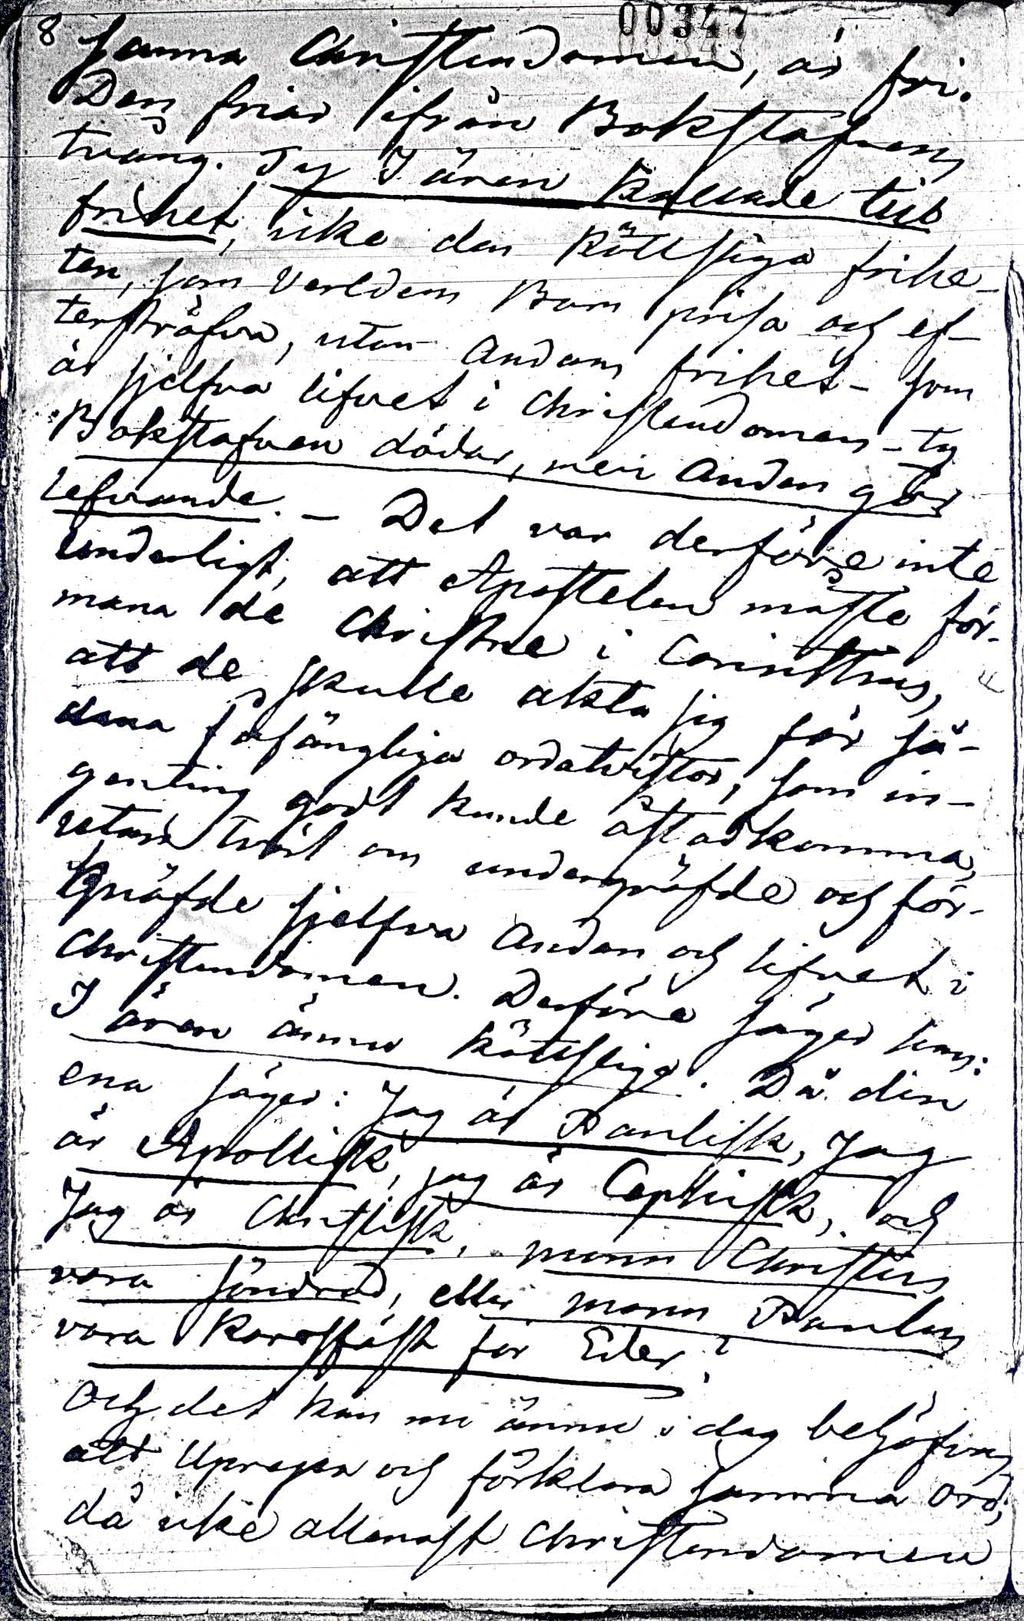 8
00347
sanna Christendomen, är fri.
Den friar ifrån Bokstafvens
tvång. Ty I ären kallade till
frihet, icke den köttsliga frihe-
ten, som Verldens Barn prisa och ef-
tersträfva, utan Andans frihet - som
är sjelfva lifvet i Christendomen - ty
Bokstafven dödar, men Andan gör
lefvande. - Det var derföre inte
underligt, att Apostelen måste för-
mana de Christne i Corinthus,
att de skulle akta sig för så-
dana fåfängliga ordatvistor, som in-
genting godt kunde åstadkomma,
utan tvärt om undergräfde och för-
qväfde sjelfva Andan och lifvet i
Christendomen. Derföre säger han:
I ären ännu köttslige. Då den
ena säger: Jag är Paulisk, Jag
är Apollisk, jag är Cephisk, och
Jag är Christisk, monn Christus
vara söndrad, eller monn Paulus
vara korsfäst för Eder?
Och det kan nu ännu i dag behöfvas
att upprepa och förklara samma Ord,
då icke allenast Christendomen